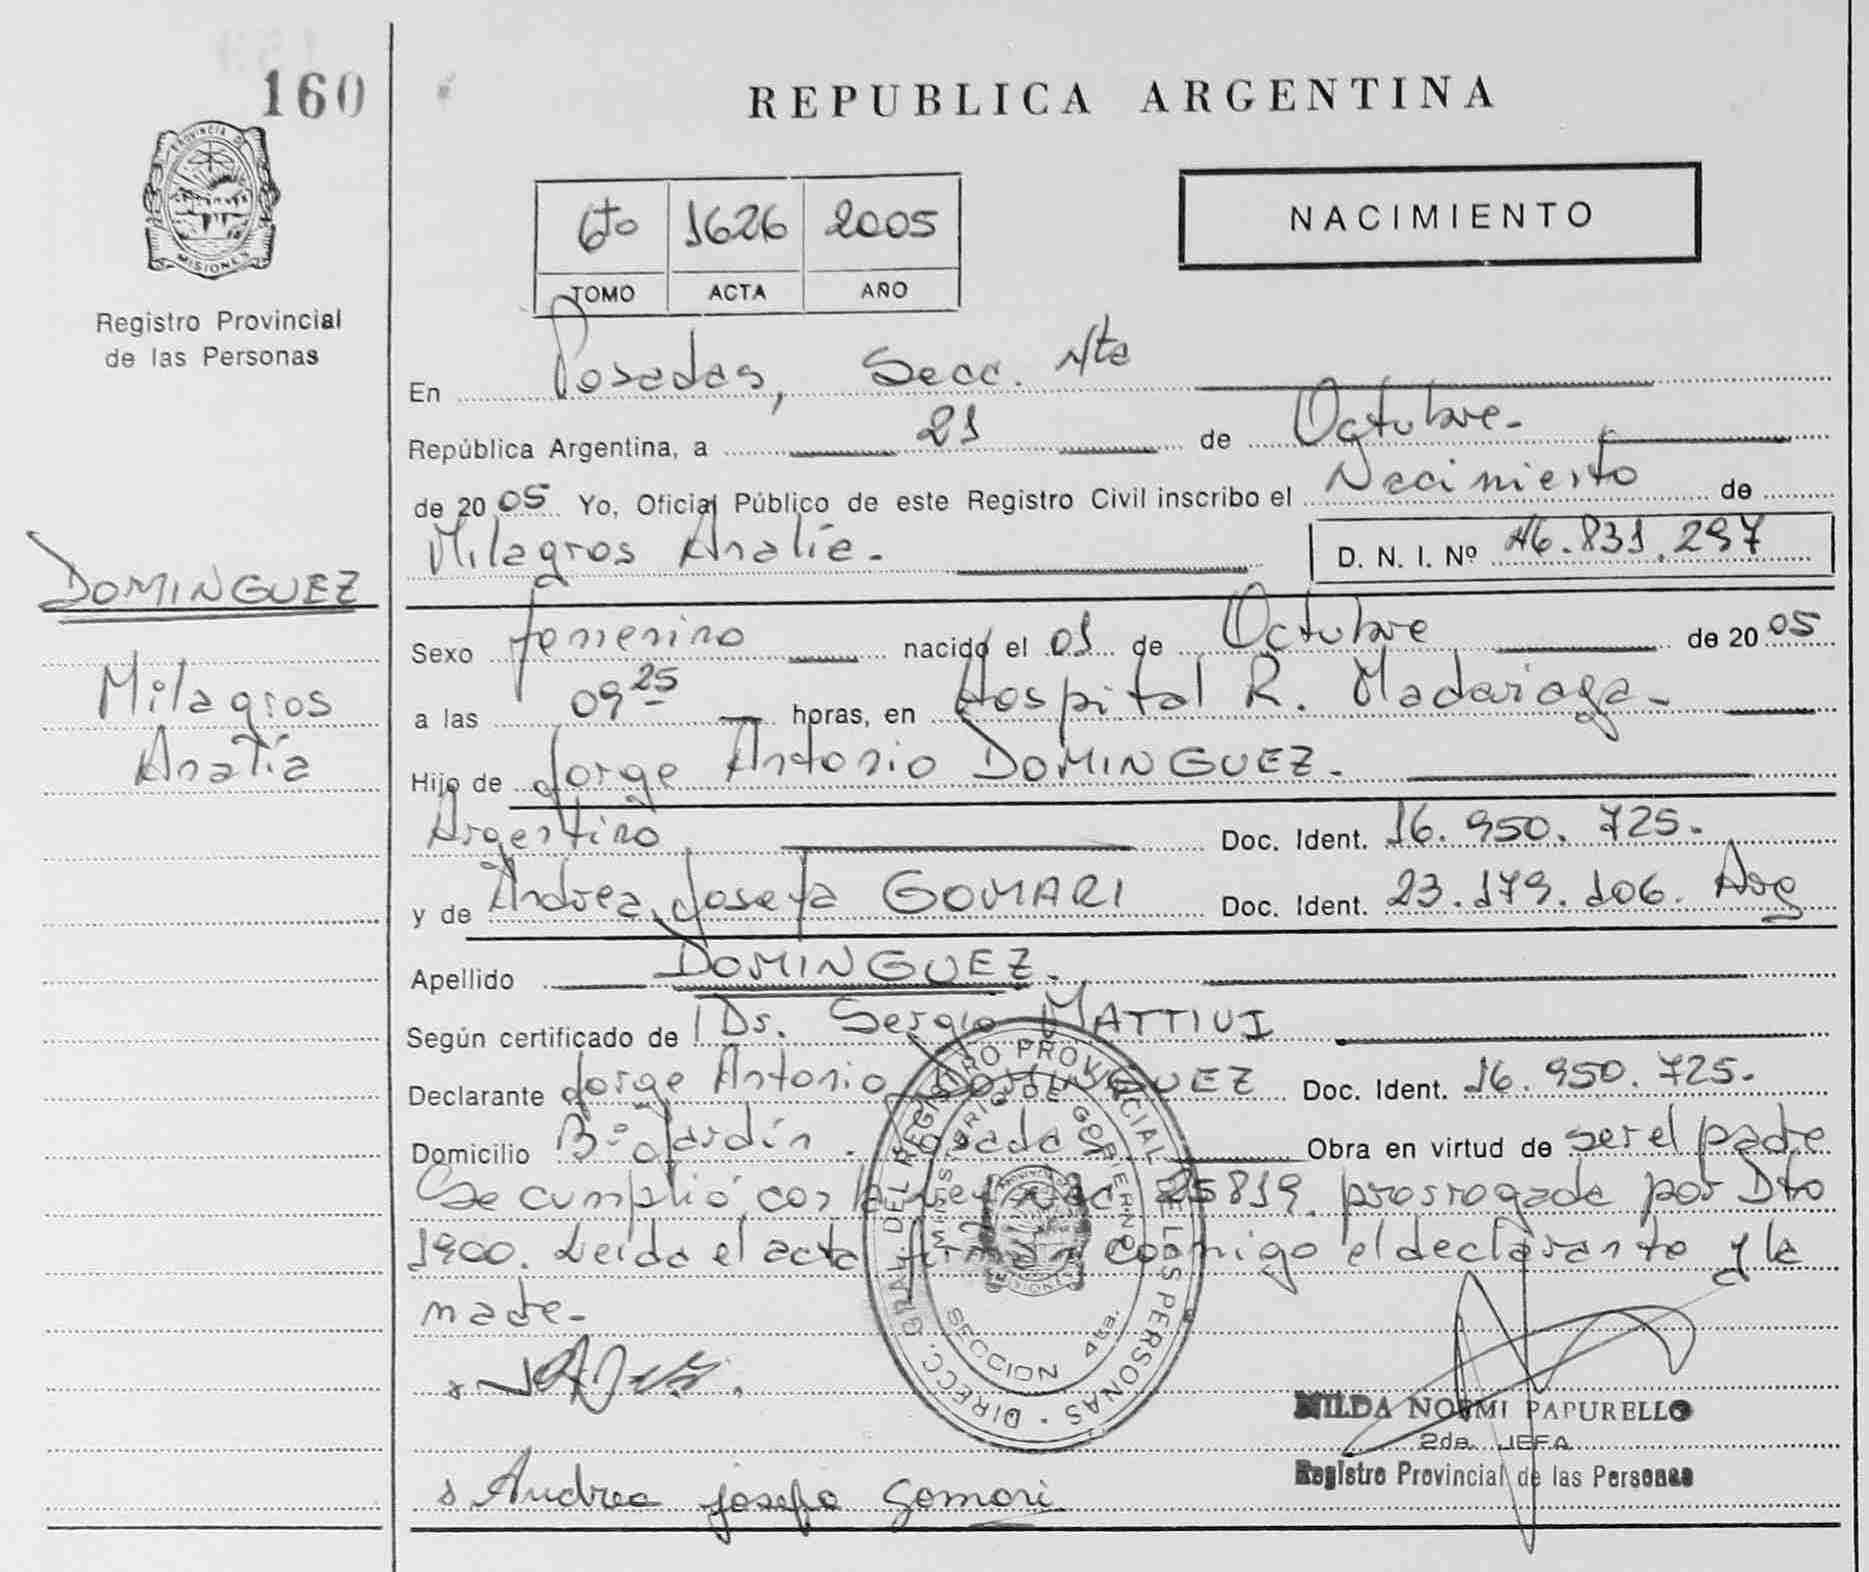 160
REPUBLICA ARGENTINA
PROVINCIA DE
MISIONES
Registro Provincial
de las Personas
6to 1626 2005
TOMO ACTA AÑO
NACIMIENTO
En Posadas, Secc. 4ta
República Argentina, a 21 de Octubre.
de 2005 Yo, Oficial Público de este Registro Civil inscribo el Nacimiento de
Milagros Analía. D. N. I. Nº 46.831.297
DOMINGUEZ
Milagros
Analía
Sexo femenino nacido el 01 de Octubre de 2005
a las 09 25 horas, en Hospital R. Madariaga
Hijo de Jorge Antonio DOMINGUEZ.
Argentino Doc. Ident. 16.950.725.
y de Andrea Josefa GOMARI Doc. Ident. 23.179.106. Arg
Apellido DOMINGUEZ.
Según certificado de Dr. Sergio
Declarante Jorge Antonio DOMINGUEZ Doc. Ident. 16.950.725.
Domicilio Bº Jardín. Posadas Obra en virtud de ser el padre
Se cumplió con la Ley Nac 25819 prorrogada por Dto
1900. Leída el acta firman conmigo el declarante y la
madre-
DIRECC. GRAL. DEL REGISTRO PROVINCIAL DE LAS PERSONAS
MINISTERIO DE GOBIERNO
SECCION 4ta.
Andrea Josefa Gomari
NILDA NOEMI PAPURELLO
2da. JEFA
Registro Provincial de las Personas